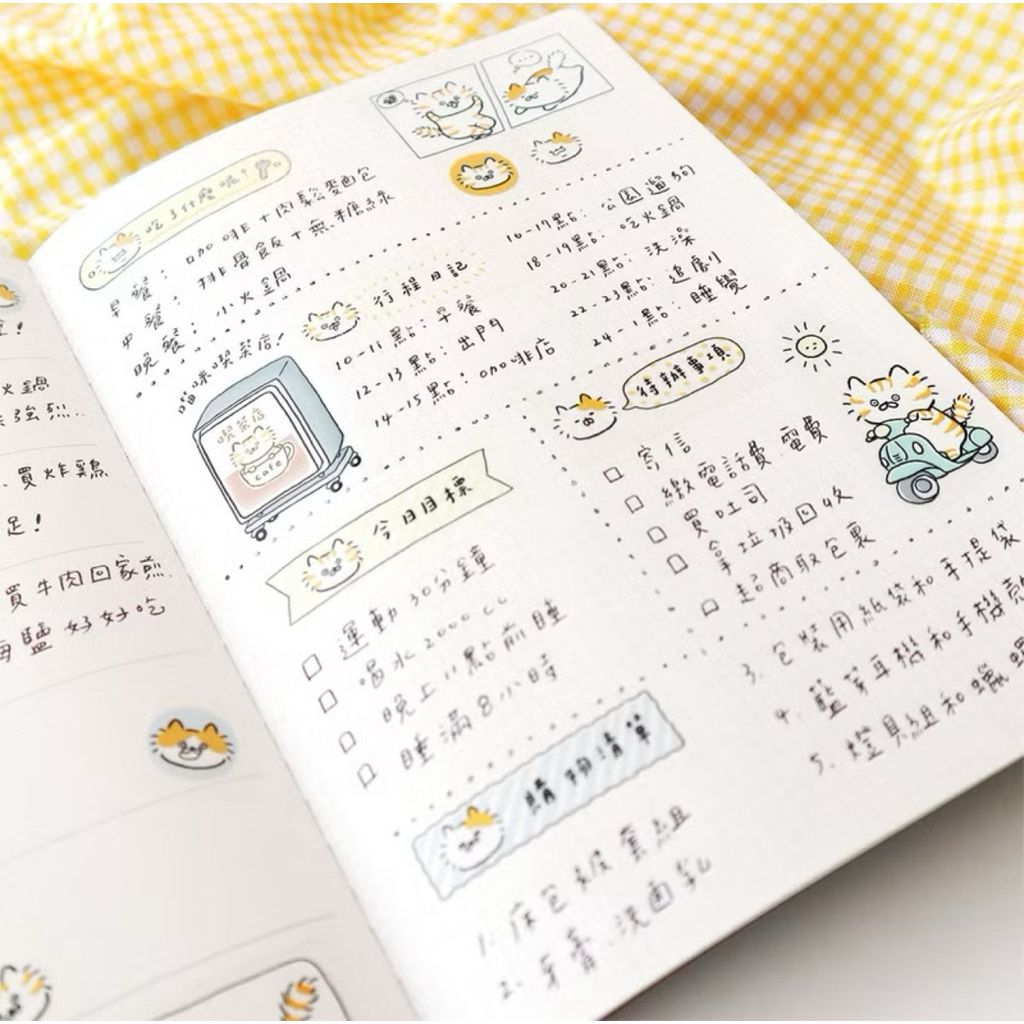 足!
火鍋
強烈..
買炸鷄
足!
買牛肉回家煎.
海鹽 好好吃
吃了什麼呢?
早餐: 咖啡+肉鬆麥面包
中餐: 排骨飯+無糖綠
晚餐: 小火鍋
喵咪喫茶店!
喫茶店
cafe
行程日記
10-11點: 早餐
12-13點: 出門
14-15點: 咖啡店
16-17點: 公園遛狗
18-19點: 吃火鍋
20-21點: 洗澡
22-23點: 追劇
24-1點: 睡覺
今日目標
□ 運動30分鐘
□ 喝水2000cc
□ 晚上11點前睡
□ 睡滿8小時
待辦事項
□ 寄信
□ 繳電話費.電費
□ 買吐司
□ 拿垃圾回收
□ 超商取包裹
購物清單
1. 床包被套組
2. 牙膏.洗面乳
3. 包裝用紙袋和手提袋
4. 藍芽耳機和手機殼
5. 燈具組和蠟